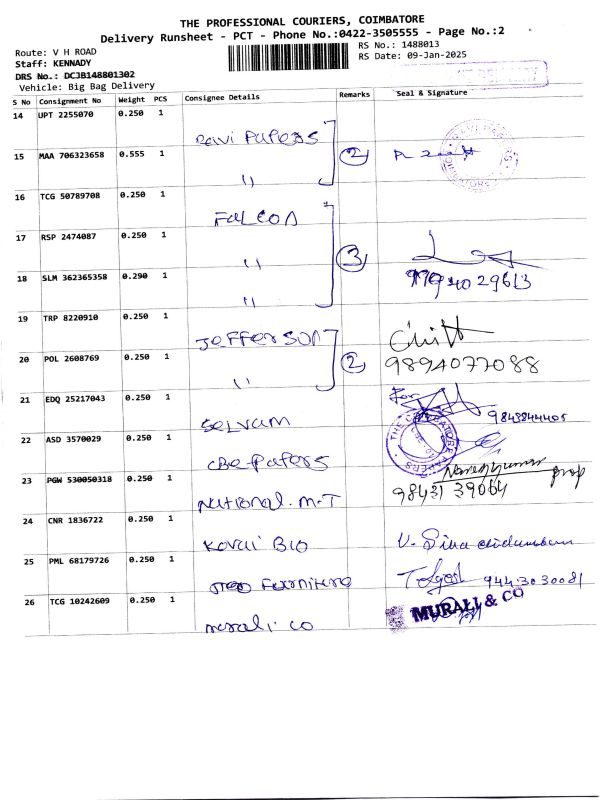 THE PROFESSIONAL COURIERS, COIMBATORE
Delivery Runsheet - PCT - Phone No.:0422-3505555 - Page No.:2
Route: V H ROAD
RS No.: 1488013
Staff: KENNADY
RS Date: 09-Jan-2025
DRS No.: DCJB148801302
Vehicle: Big Bag Delivery
S No Consignment No Weight PCS Consignee Details Remarks Seal & Signature
14 UPT 2255070 0.250 1 Ravi Papers
15 MAA 706323658 0.555 1 " 2
16 TCG 50789708 0.250 1 FALCON
17 RSP 2474087 0.250 1 " 3
18 SLM 362365358 0.290 1 " 9794029613
19 TRP 8220910 0.250 1 JEFFERSON
20 POL 2608769 0.250 1 " 2 9894077088
21 EDQ 25217043 0.250 1 Selvam For 9843844405
22 ASD 3570029 0.250 1 CBE-Papers
23 PGW 530050318 0.250 1 National. M-T 98431 39064 prop
24 CNR 1836722 0.250 1 Kovai Bio
25 PML 68179726 0.250 1 Furniture 9443030081
26 TCG 10242609 0.250 1 murali co MURALI & CO